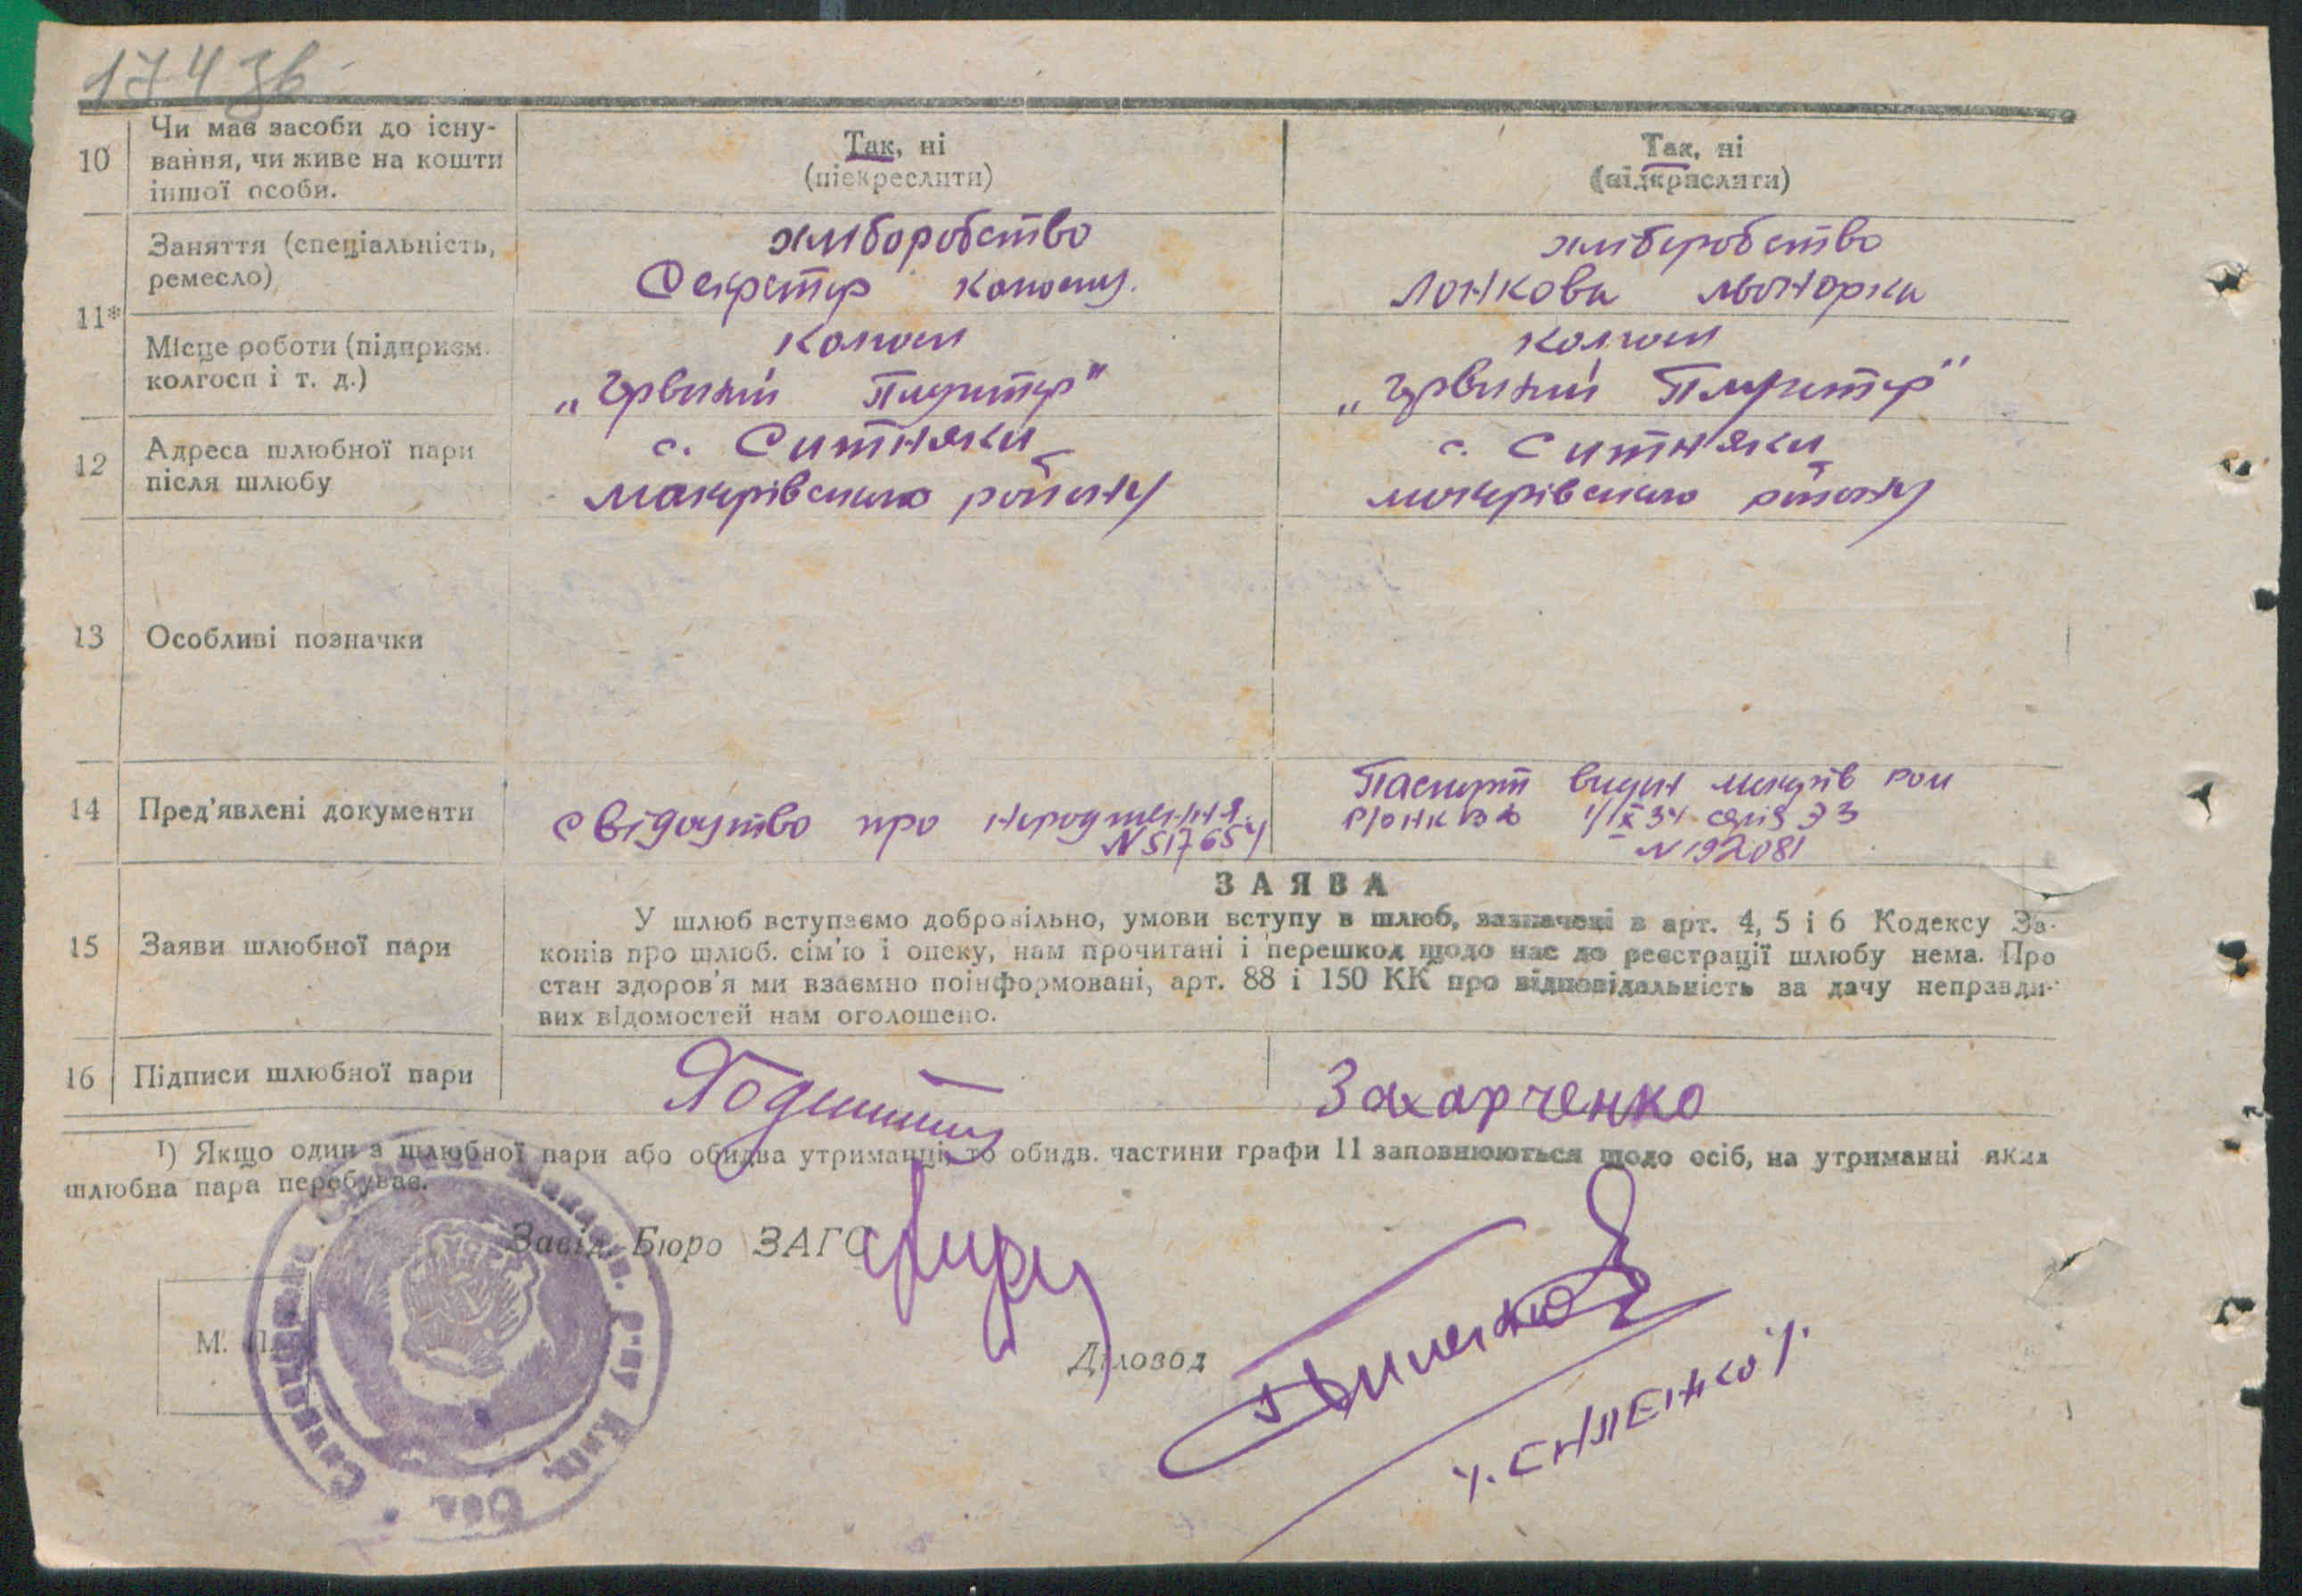 174 зв
10
Чи має засоби до існу-
вання, чи живе на кошти
іншої особи.
Так, ні
(піекреслити)
Так, ні
(підкрислити)
11*
Заняття (спеціальність,
ремесло)
хліборобство
Секретар колгоспу.
хліборобство
Ланкова
Місце роботи (підприєм.
колгосп і т. д.)
колгосп
„Червоний
колгосп
„Червоний
12
Адреса шлюбної пари
після шлюбу
с. Ситняки
Макарівського району
с. Ситняки
Макарівського району
13
Особливі позначки
14
Пред'явлені документи
свідоцтво про народження
Паспорт видан Макарів рай
серія ЭЗ
N 192081
15
Заяви шлюбної пари
ЗАЯВА
У шлюб вступаємо добровільно, умови вступу в шлюб, зазначені в арт. 4, 5 і 6 Кодексу За-
конів про шлюб. сім'ю і опеку, нам прочитані і перешкод щодо нас до реєстрації шлюбу нема. Про
стан здоров'я ми взаємно поінформовані, арт. 88 і 150 КК про відповідальність за дачу неправди-
вих відомостей нам оголошено.
16
Підписи шлюбної пари
Захарченко
1) Якщо один з шлюбної пари або обидва утриманці, то обидв. частини графи 11 заповнюються щодо осіб, на утриманні яких
шлюбна пара перебуває.
Завід. Бюро ЗАГС
М. П.
Діловод